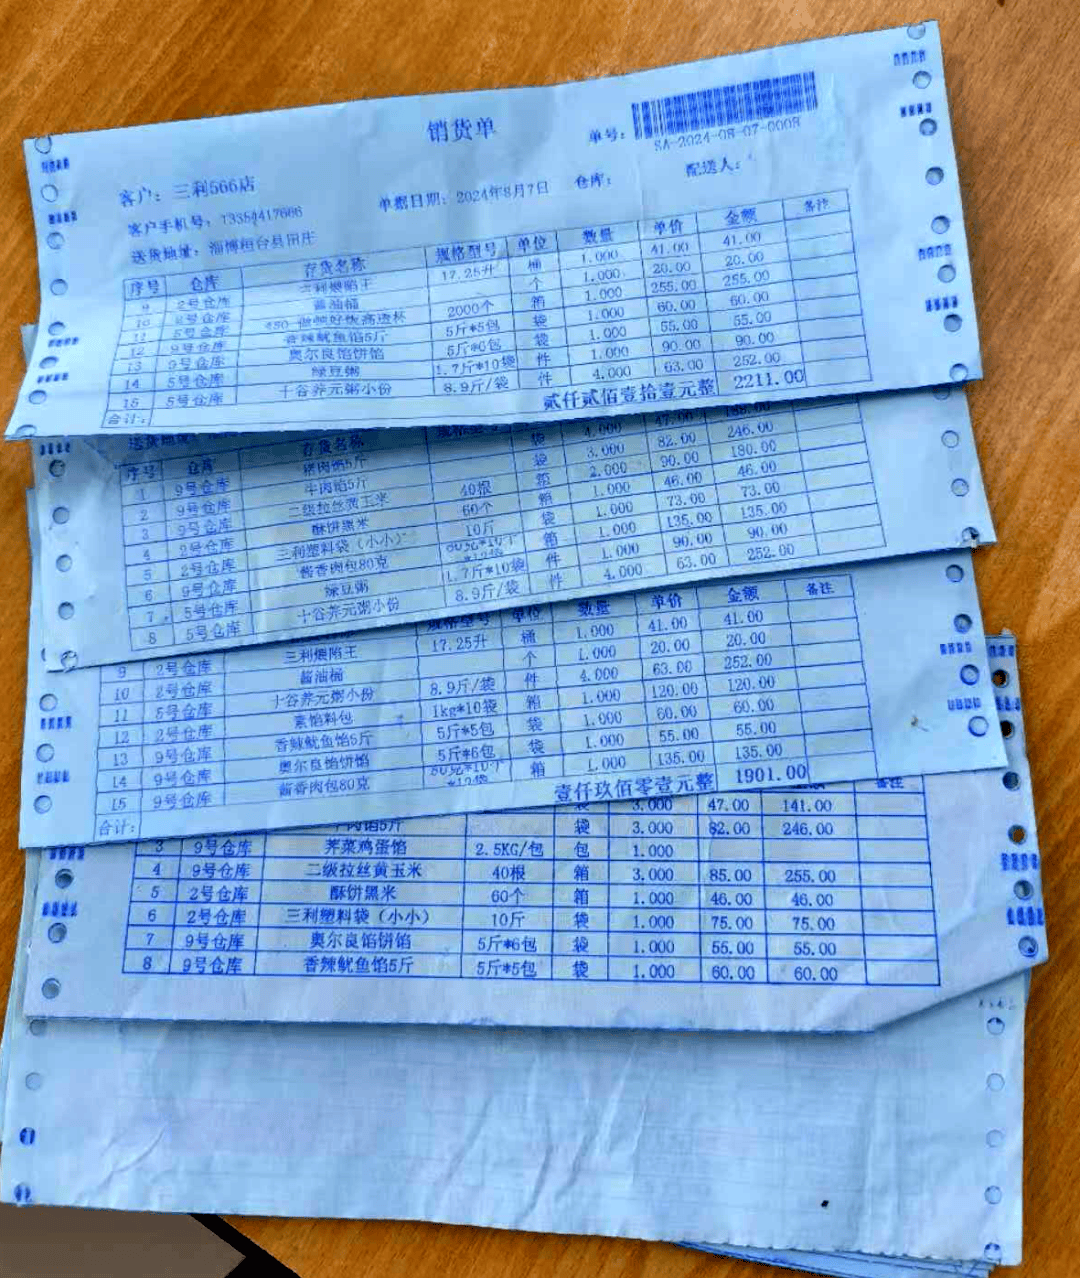 销货单
单号： SA-2024-08-07-0008
客户：三利566店 单据日期：2024年8月7日 仓库： 配送人：
客户手机号：
送货地址：淄博桓台县田庄
序号 仓库 存货名称 规格型号 单位 数量 单价 金额 备注
9 2号仓库 17.25升 桶 1.000 41.00 41.00
10 2号仓库 酱油桶 个 1.000 20.00 20.00
11 5号仓库 2000个 箱 1.000 255.00 255.00
12 9号仓库 香辣鱿鱼馅5斤 5斤*5包 袋 1.000 60.00 60.00
13 9号仓库 奥尔良馅饼馅 5斤*6包 袋 1.000 55.00 55.00
14 5号仓库 绿豆粥 1.7斤*10袋 件 1.000 90.00 90.00
15 5号仓库 十谷养元粥小份 8.9斤/袋 件 4.000 63.00 252.00
合计： 贰仟贰佰壹拾壹元整 2211.00
序号 仓库 存货名称
1 9号仓库 猪肉馅5斤 袋 4.000 47.00
2 9号仓库 牛肉馅5斤 袋 3.000 82.00 246.00
3 9号仓库 二级拉丝黄玉米 40根 箱 2.000 90.00 180.00
4 2号仓库 酥饼黑米 60个 箱 1.000 46.00 46.00
5 2号仓库 三利塑料袋（小小） 10斤 袋 1.000 73.00 73.00
6 9号仓库 酱香肉包80克 箱 1.000 135.00 135.00
7 5号仓库 绿豆粥 1.7斤*10袋 件 1.000 90.00 90.00
8 5号仓库 十谷养元粥小份 8.9斤/袋 件 4.000 63.00 252.00
规格型号 单位 数量 单价 金额 备注
9 2号仓库 17.25升 桶 1.000 41.00 41.00
10 2号仓库 酱油桶 个 1.000 20.00 20.00
11 5号仓库 十谷养元粥小份 8.9斤/袋 件 4.000 63.00 252.00
12 2号仓库 素馅料包 1kg*10袋 箱 1.000 120.00 120.00
13 9号仓库 香辣鱿鱼馅5斤 5斤*5包 袋 1.000 60.00 60.00
14 9号仓库 奥尔良馅饼馅 5斤*6包 袋 1.000 55.00 55.00
15 9号仓库 酱香肉包80克 箱 1.000 135.00 135.00
合计： 壹仟玖佰零壹元整 1901.00
备注
袋 3.000 47.00 141.00
牛肉馅5斤 袋 3.000 82.00 246.00
3 9号仓库 荠菜鸡蛋馅 2.5KG/包 包 1.000
4 9号仓库 二级拉丝黄玉米 40根 箱 3.000 85.00 255.00
5 2号仓库 酥饼黑米 60个 箱 1.000 46.00 46.00
6 2号仓库 三利塑料袋（小小） 10斤 袋 1.000 75.00 75.00
7 9号仓库 奥尔良馅饼馅 5斤*6包 袋 1.000 55.00 55.00
8 9号仓库 香辣鱿鱼馅5斤 5斤*5包 袋 1.000 60.00 60.00